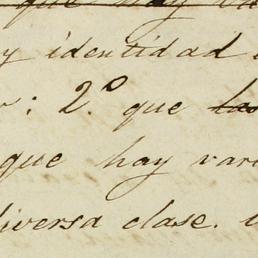 que hay
y identidad
: 2.º que las
que hay vari
diversa clase.